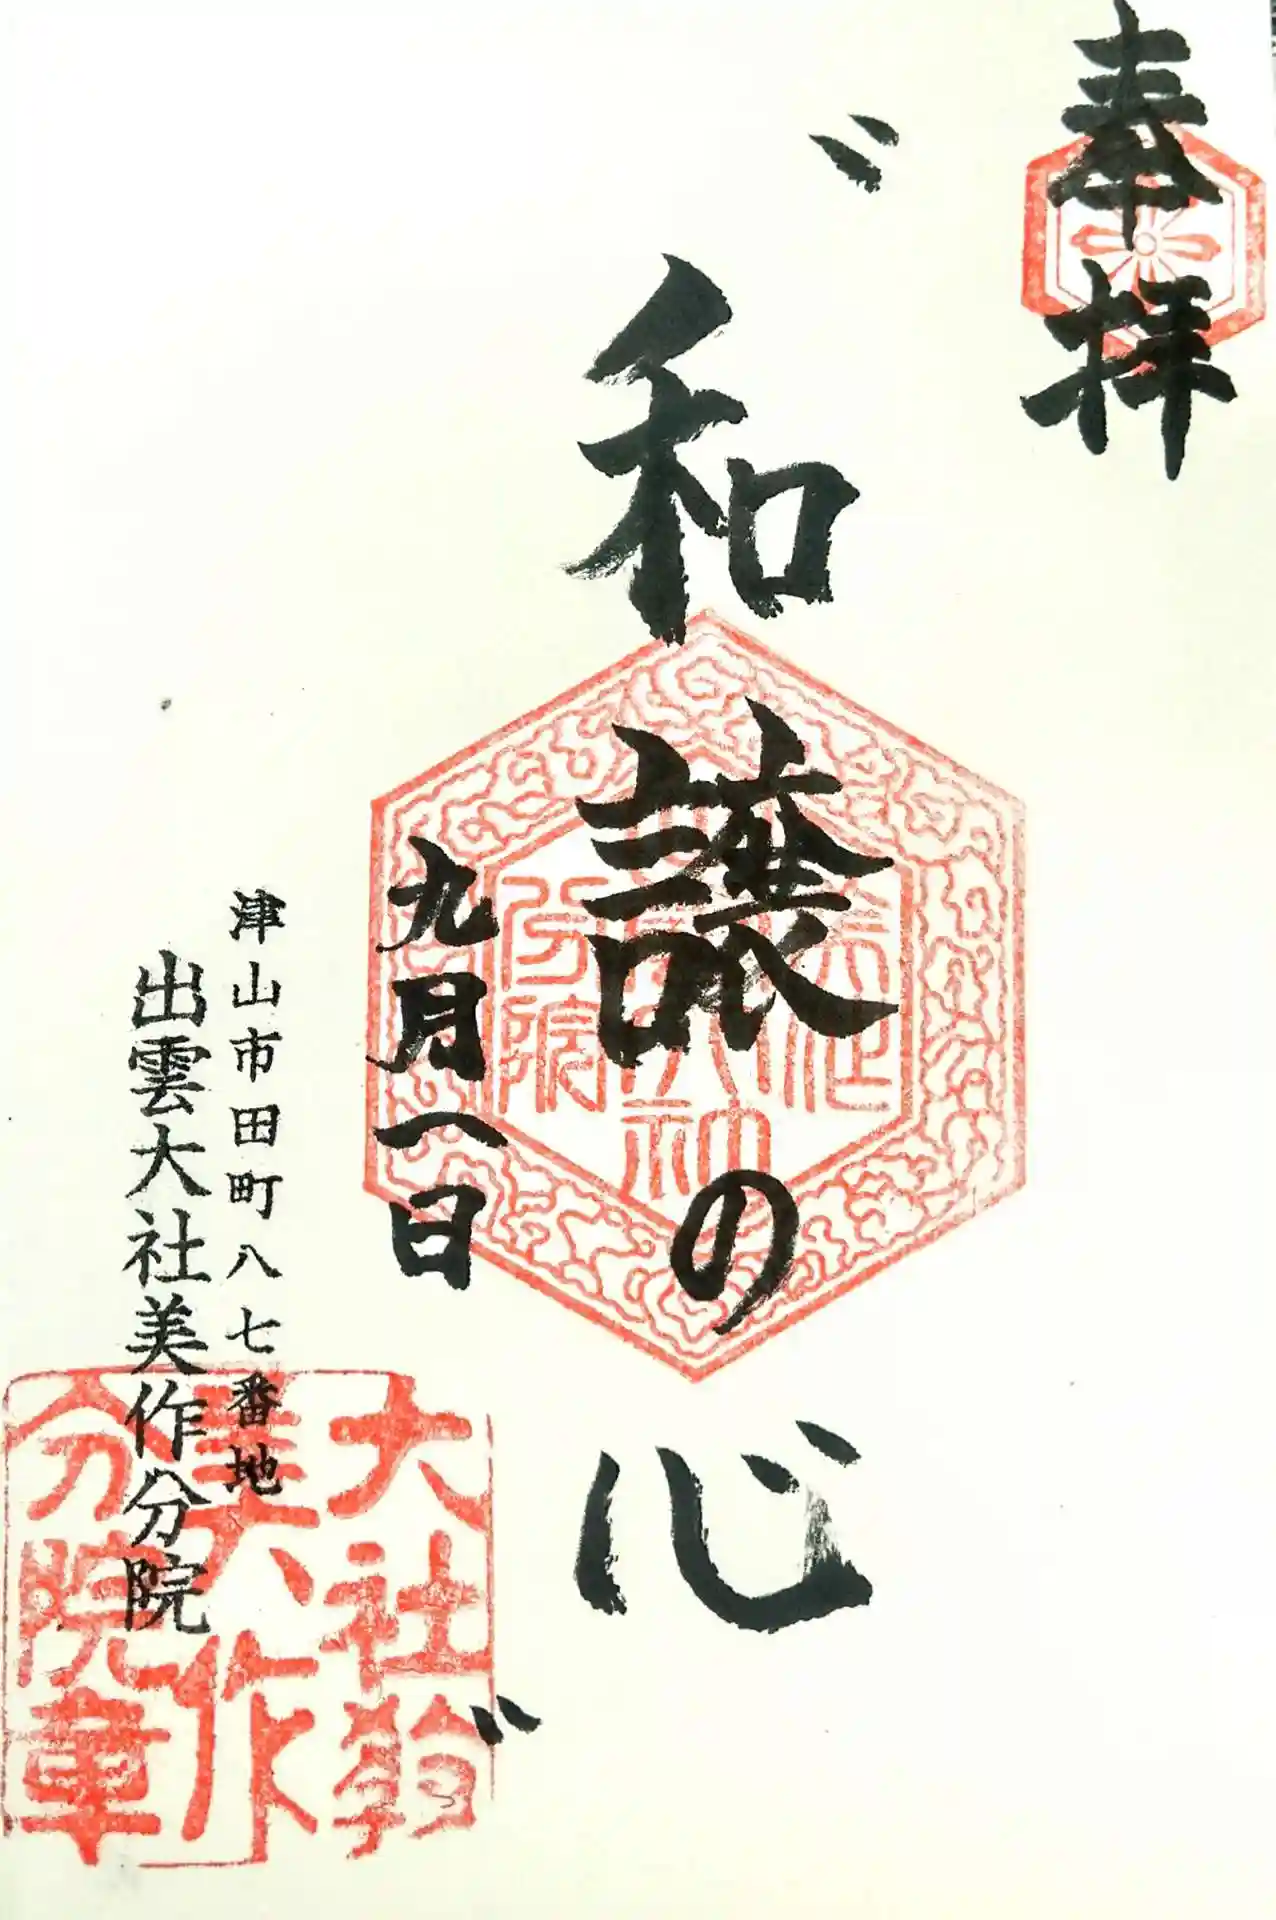 奉拝
〝和譲の心〟
九月一日
津山市田町八七番地
出雲大社美作分院
大社教
美作
分院章
分院